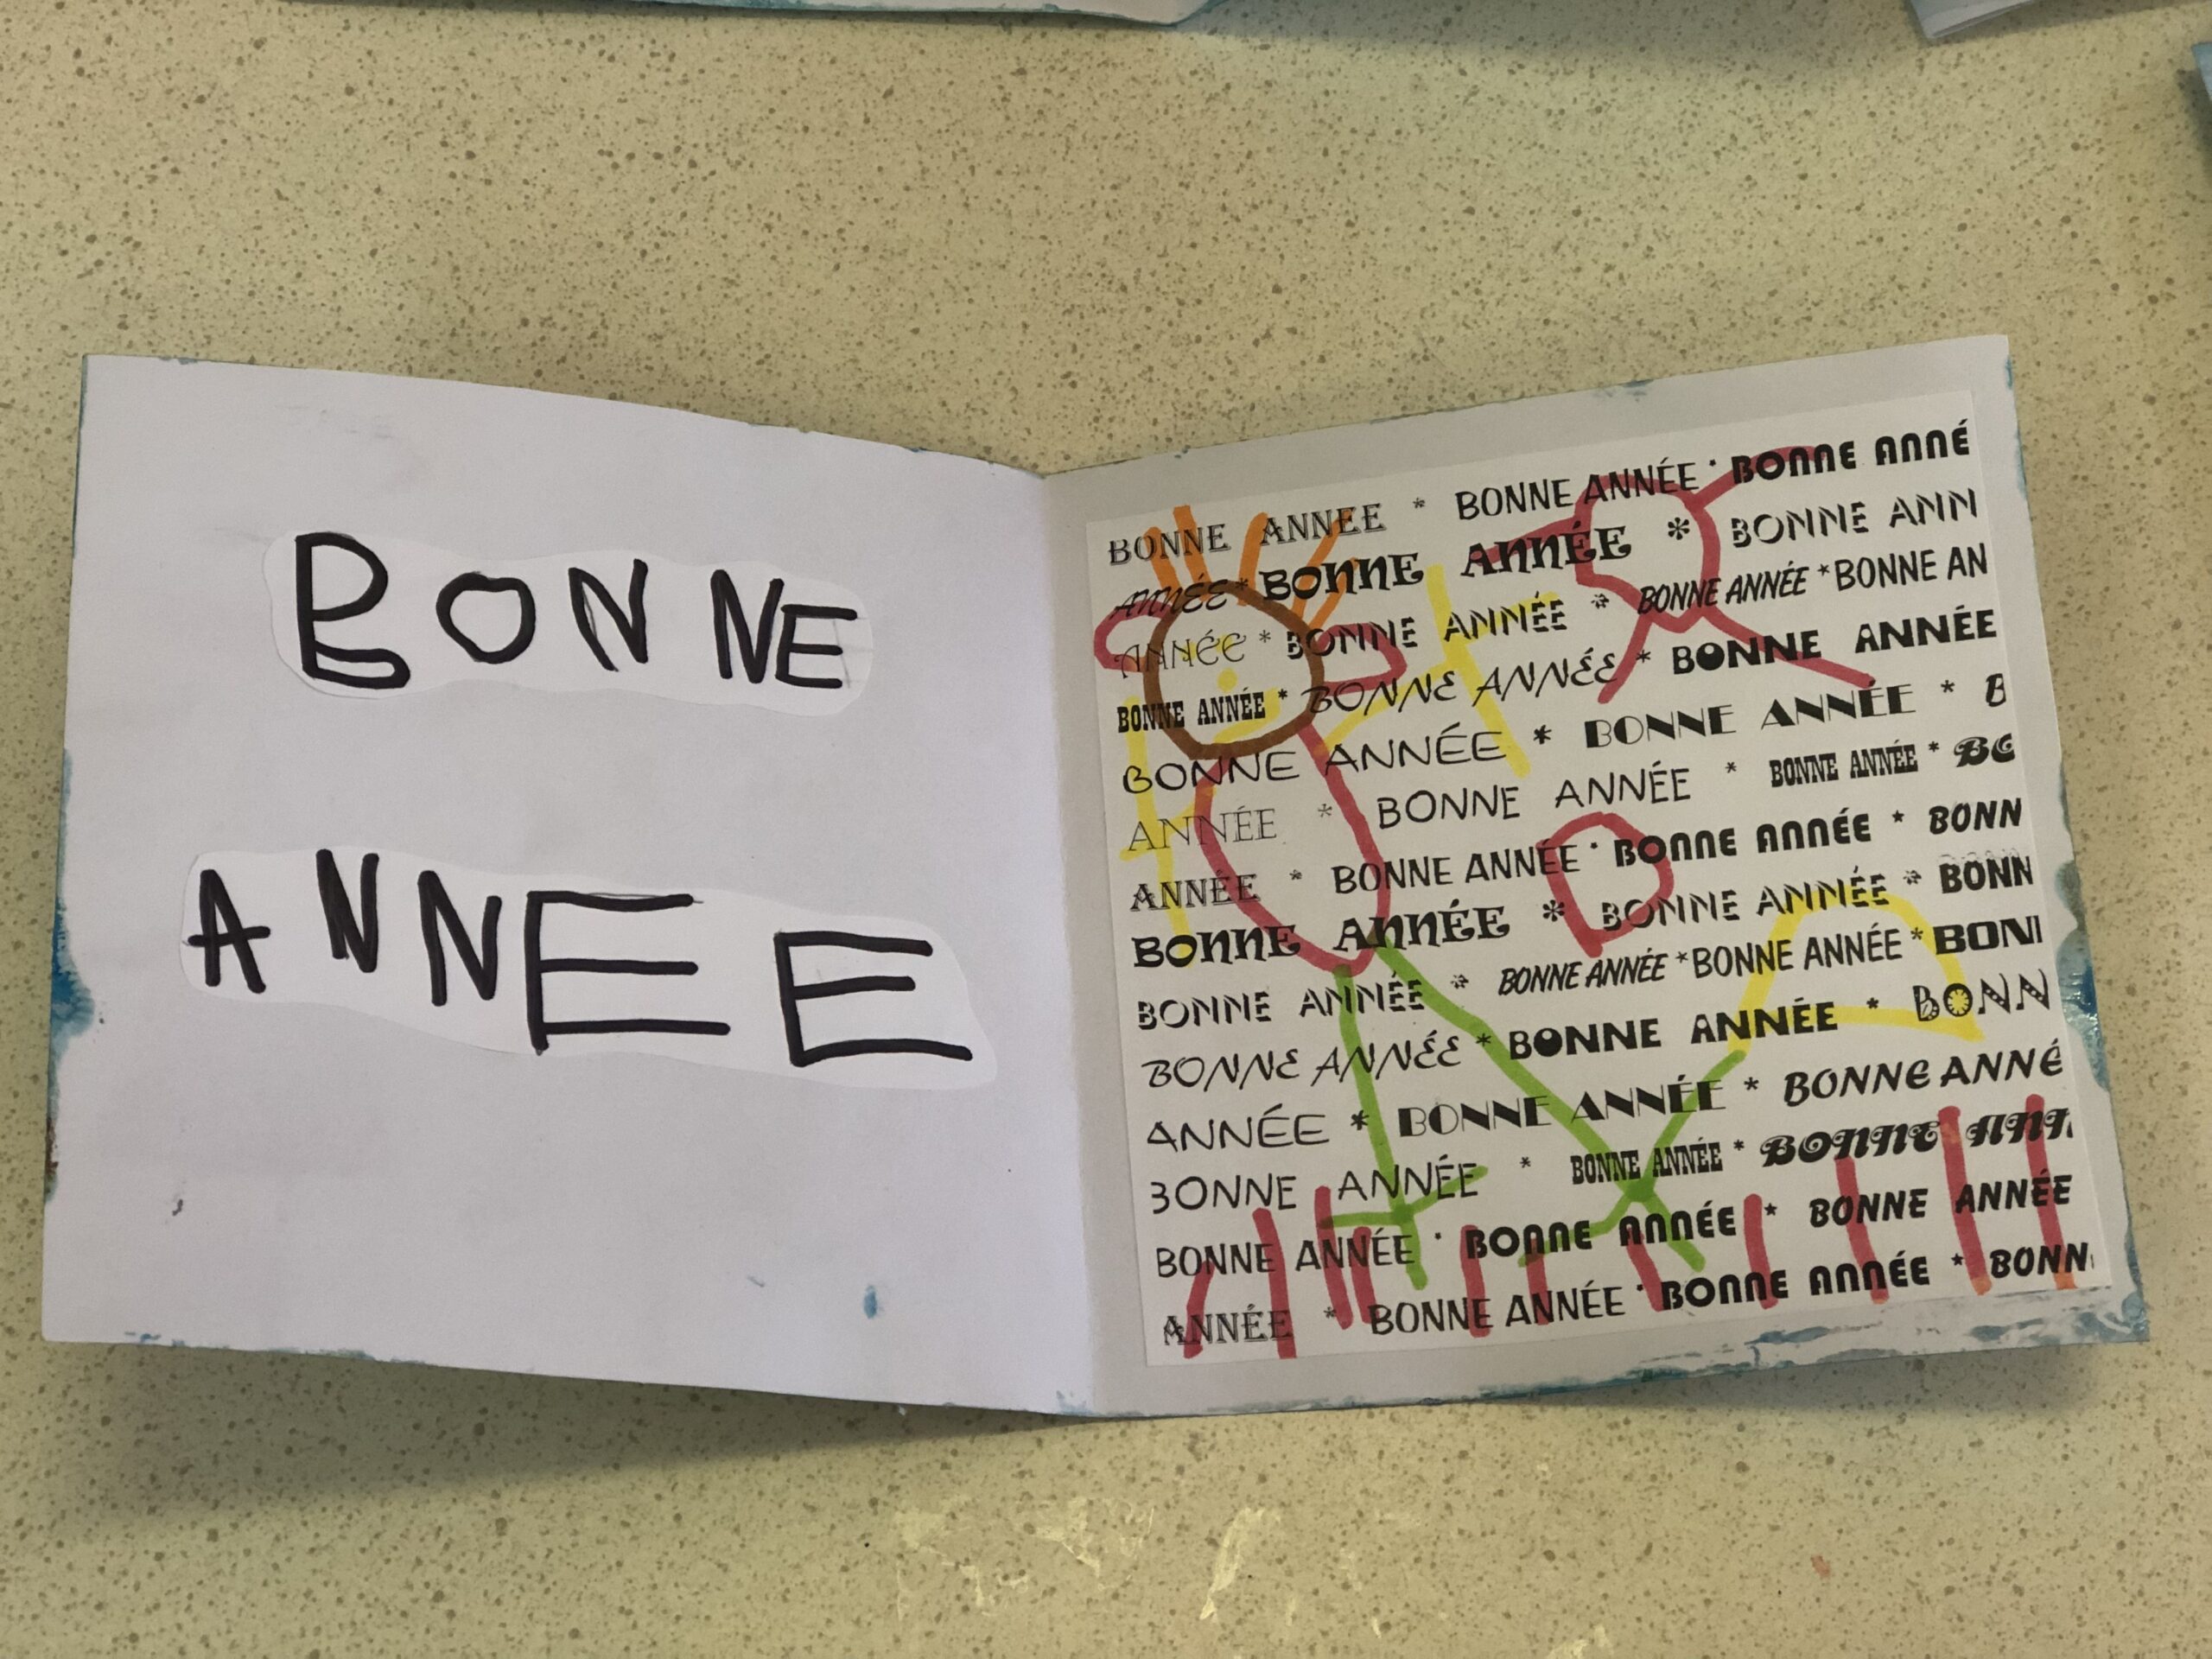 BONNE
ANNEE
BONNE ANNEE * BONNE ANNÉE * BONNE ANNÉ
ANNÉE * BONNE ANNÉE * BONNE ANN
ANNÉE * BONNE ANNÉE * BONNE ANNÉE * BONNE AN
BONNE ANNÉE * BONNE ANNÉE * BONNE ANNÉE
BONNE ANNÉE * BONNE ANNÉE * B
ANNÉE * BONNE ANNÉE * BONNE ANNÉE * BO
ANNÉE * BONNE ANNÉE * BONNE ANNÉE * BONN
BONNE ANNÉE * BONNE ANNÉE * BONN
BONNE ANNÉE * BONNE ANNÉE * BONNE ANNÉE * BONN
BONNE ANNÉE * BONNE ANNÉE * BONN
ANNÉE * BONNE ANNÉE * BONNE ANNÉ
BONNE ANNÉE * BONNE ANNÉE * BONNE ANN
BONNE ANNÉE * BONNE ANNÉE * BONNE ANNÉE
ANNÉE * BONNE ANNÉE * BONNE ANNÉE * BONN